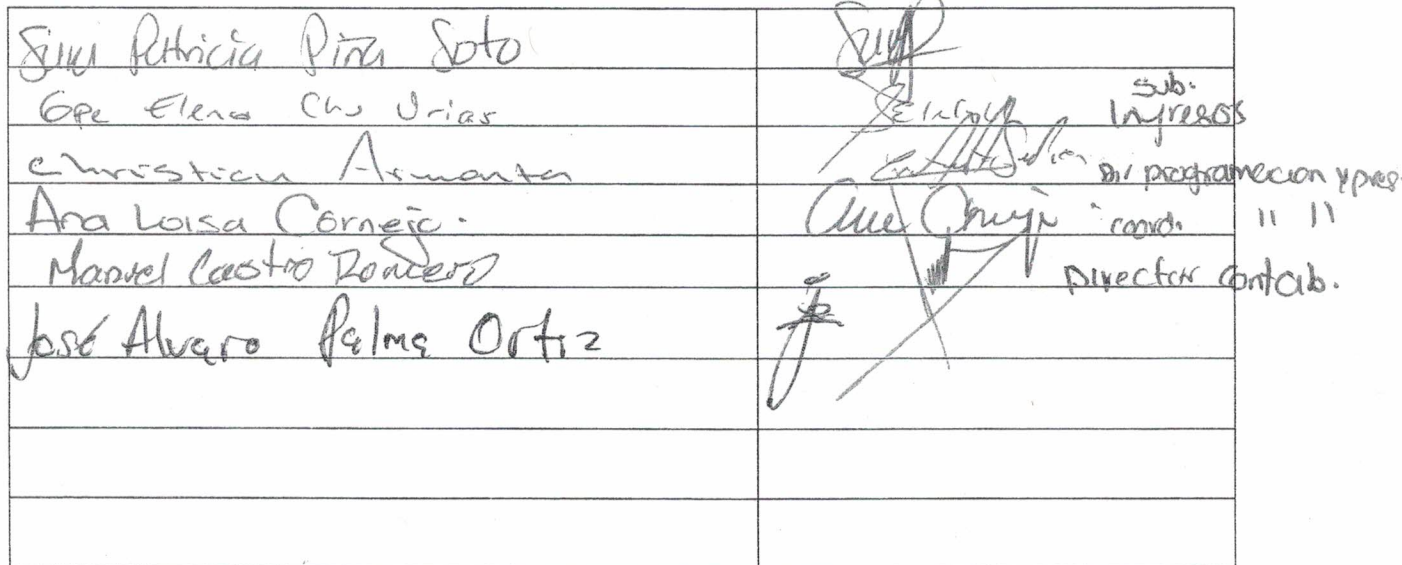 Patricia Piña Soto
Gpe Elena Chu Urias
sub.
Ingresos
Christian Armenta
Dir programacion y pres.
Ana Luisa Cornejo.
coord. " "
Manuel Castro Romero
Director contab.
José Alvaro Palma Ortiz